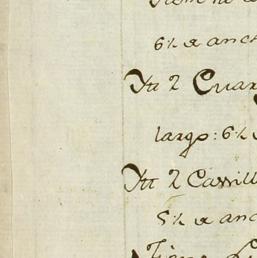 6½ de anch
Itt 2 Cuar
largo: 6½
Itt 2 Cassill
5½ de anc